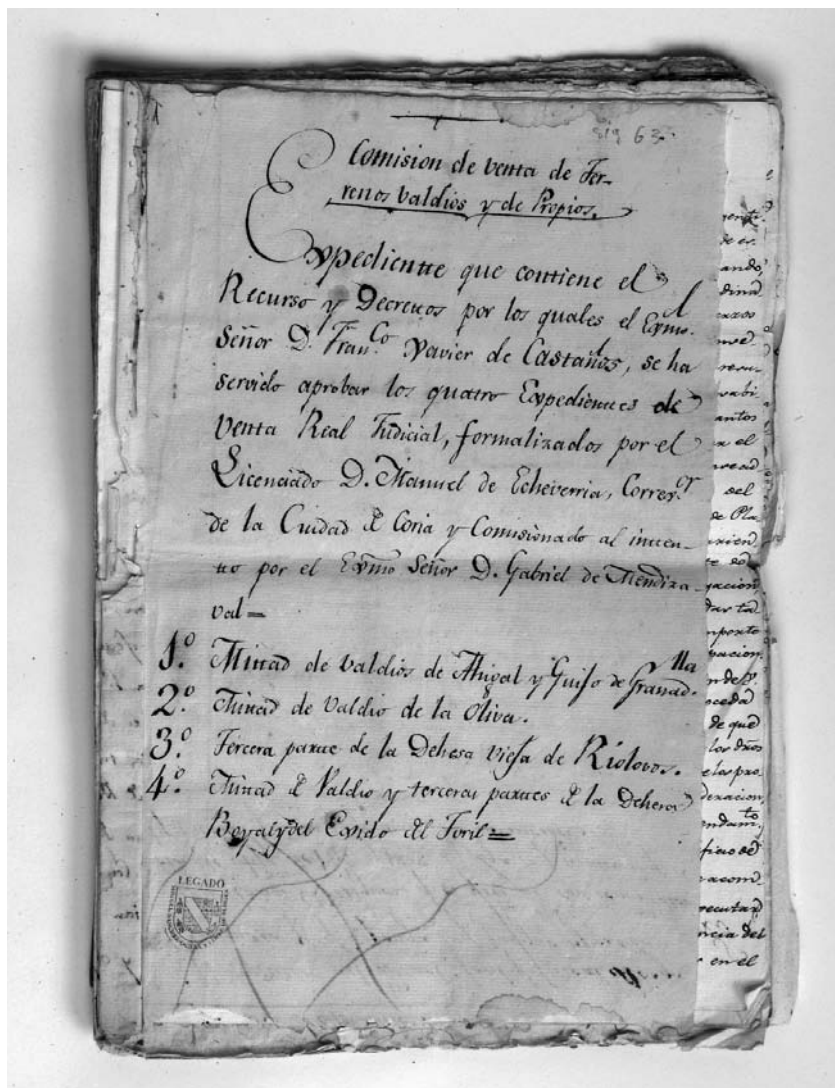 sig 63
Comision de venta de Ter-
renos valdios y de Propios.
Expediente que contiene el
Recurso y Decretos por los quales el Exmo.
Señor D. Fran.co Xavier de Castaños, se ha
servido aprobar los quatro Expedientes de
venta Real Judicial, formalizados por el
Licenciado D. Manuel de Echeverria, Correg.or
de la Ciudad de Coria y Comisionado al inten-
to por el Exmo Señor D. Gabriel de Mendiza
val=
1.º Mitad de valdios de Ahigal y Guijo de Granad.lla
2.º Mitad de Valdio de la Oliva.
3.º Tercera parte de la Dehesa vieja de Riolovos.
4.º Mitad de Valdio y terceras partes de la Dehesa
Boyal y del Exido del Toril=
LEGADO
ando,
dina
antos
el
del
de Pla
gacion,
pacion.
de que
los dños
elas pro.
ecutar
ncia del
en el